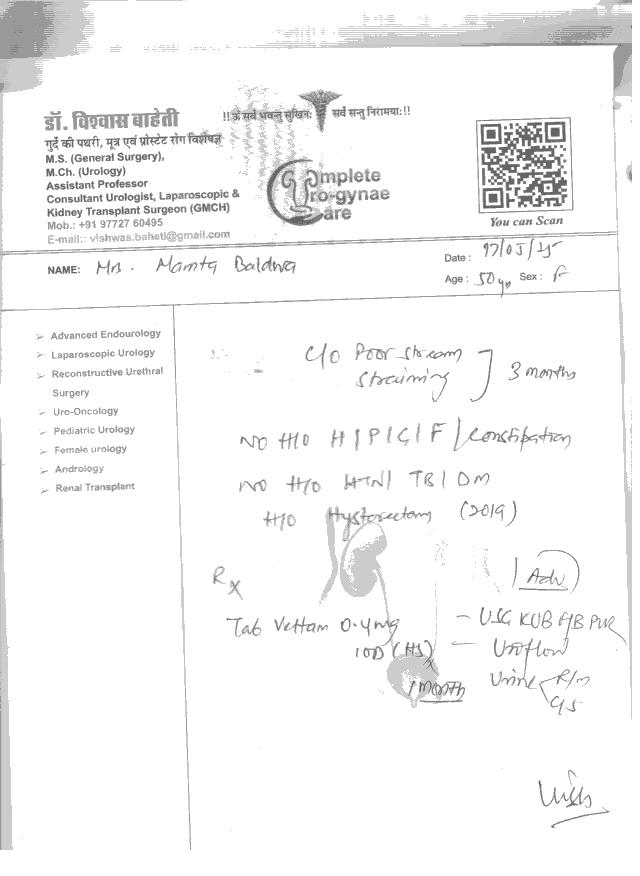 !! ॐ सर्वे भवन्तु सुखिनः सर्वे सन्तु निरामयाः!!
डॉ. विश्वास बाहेती
गुर्दे की पथरी, मूत्र एवं प्रोस्टेट रोग विशेषज्ञ
M.S. (General Surgery),
M.Ch. (Urology)
Assistant Professor
Consultant Urologist, Laparoscopic &
Kidney Transplant Surgeon (GMCH)
Mob.: +91 97727 60495
E-mail:: vishwas.baheti@gmail.com
Complete
Uro-gynae
Care
You can Scan
NAME: Mrs. Mamta Baldwa
Date : 17/05/25
Age : 50 yr Sex : F
Advanced Endourology
Laparoscopic Urology
Reconstructive Urethral
Surgery
Uro-Oncology
Pediatric Urology
Female urology
Andrology
Renal Transplant
C/O Poor stream
straining ] 3 months
NO H/O H/P/G/F/Constipation
NO H/O HTN/ TB/ DM
H/O Hysterectomy (2019)
Rx
Tab Vettam 0.4mg
1OD (HS)
x
1 month
Adv
- USG KUB PVR
- Uroflow
Urine R/m
C/S